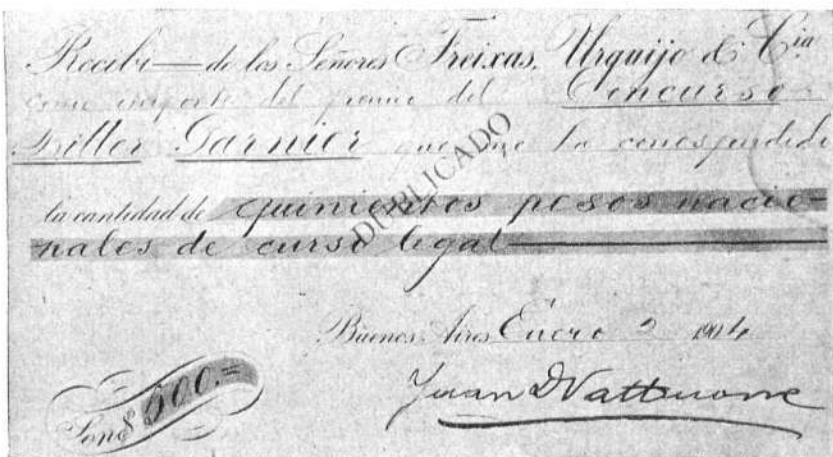 Recibí — de los Señores Freixas, Urquijo & Cia
como importe del premio del Concurso
Bitter Garnier que me ha correspondido
DUPLICADO
la cantidad de quinientos pesos nacio-
nales de curso legal
Buenos Aires Enero 2 1904
Son $ 500.=
Juan